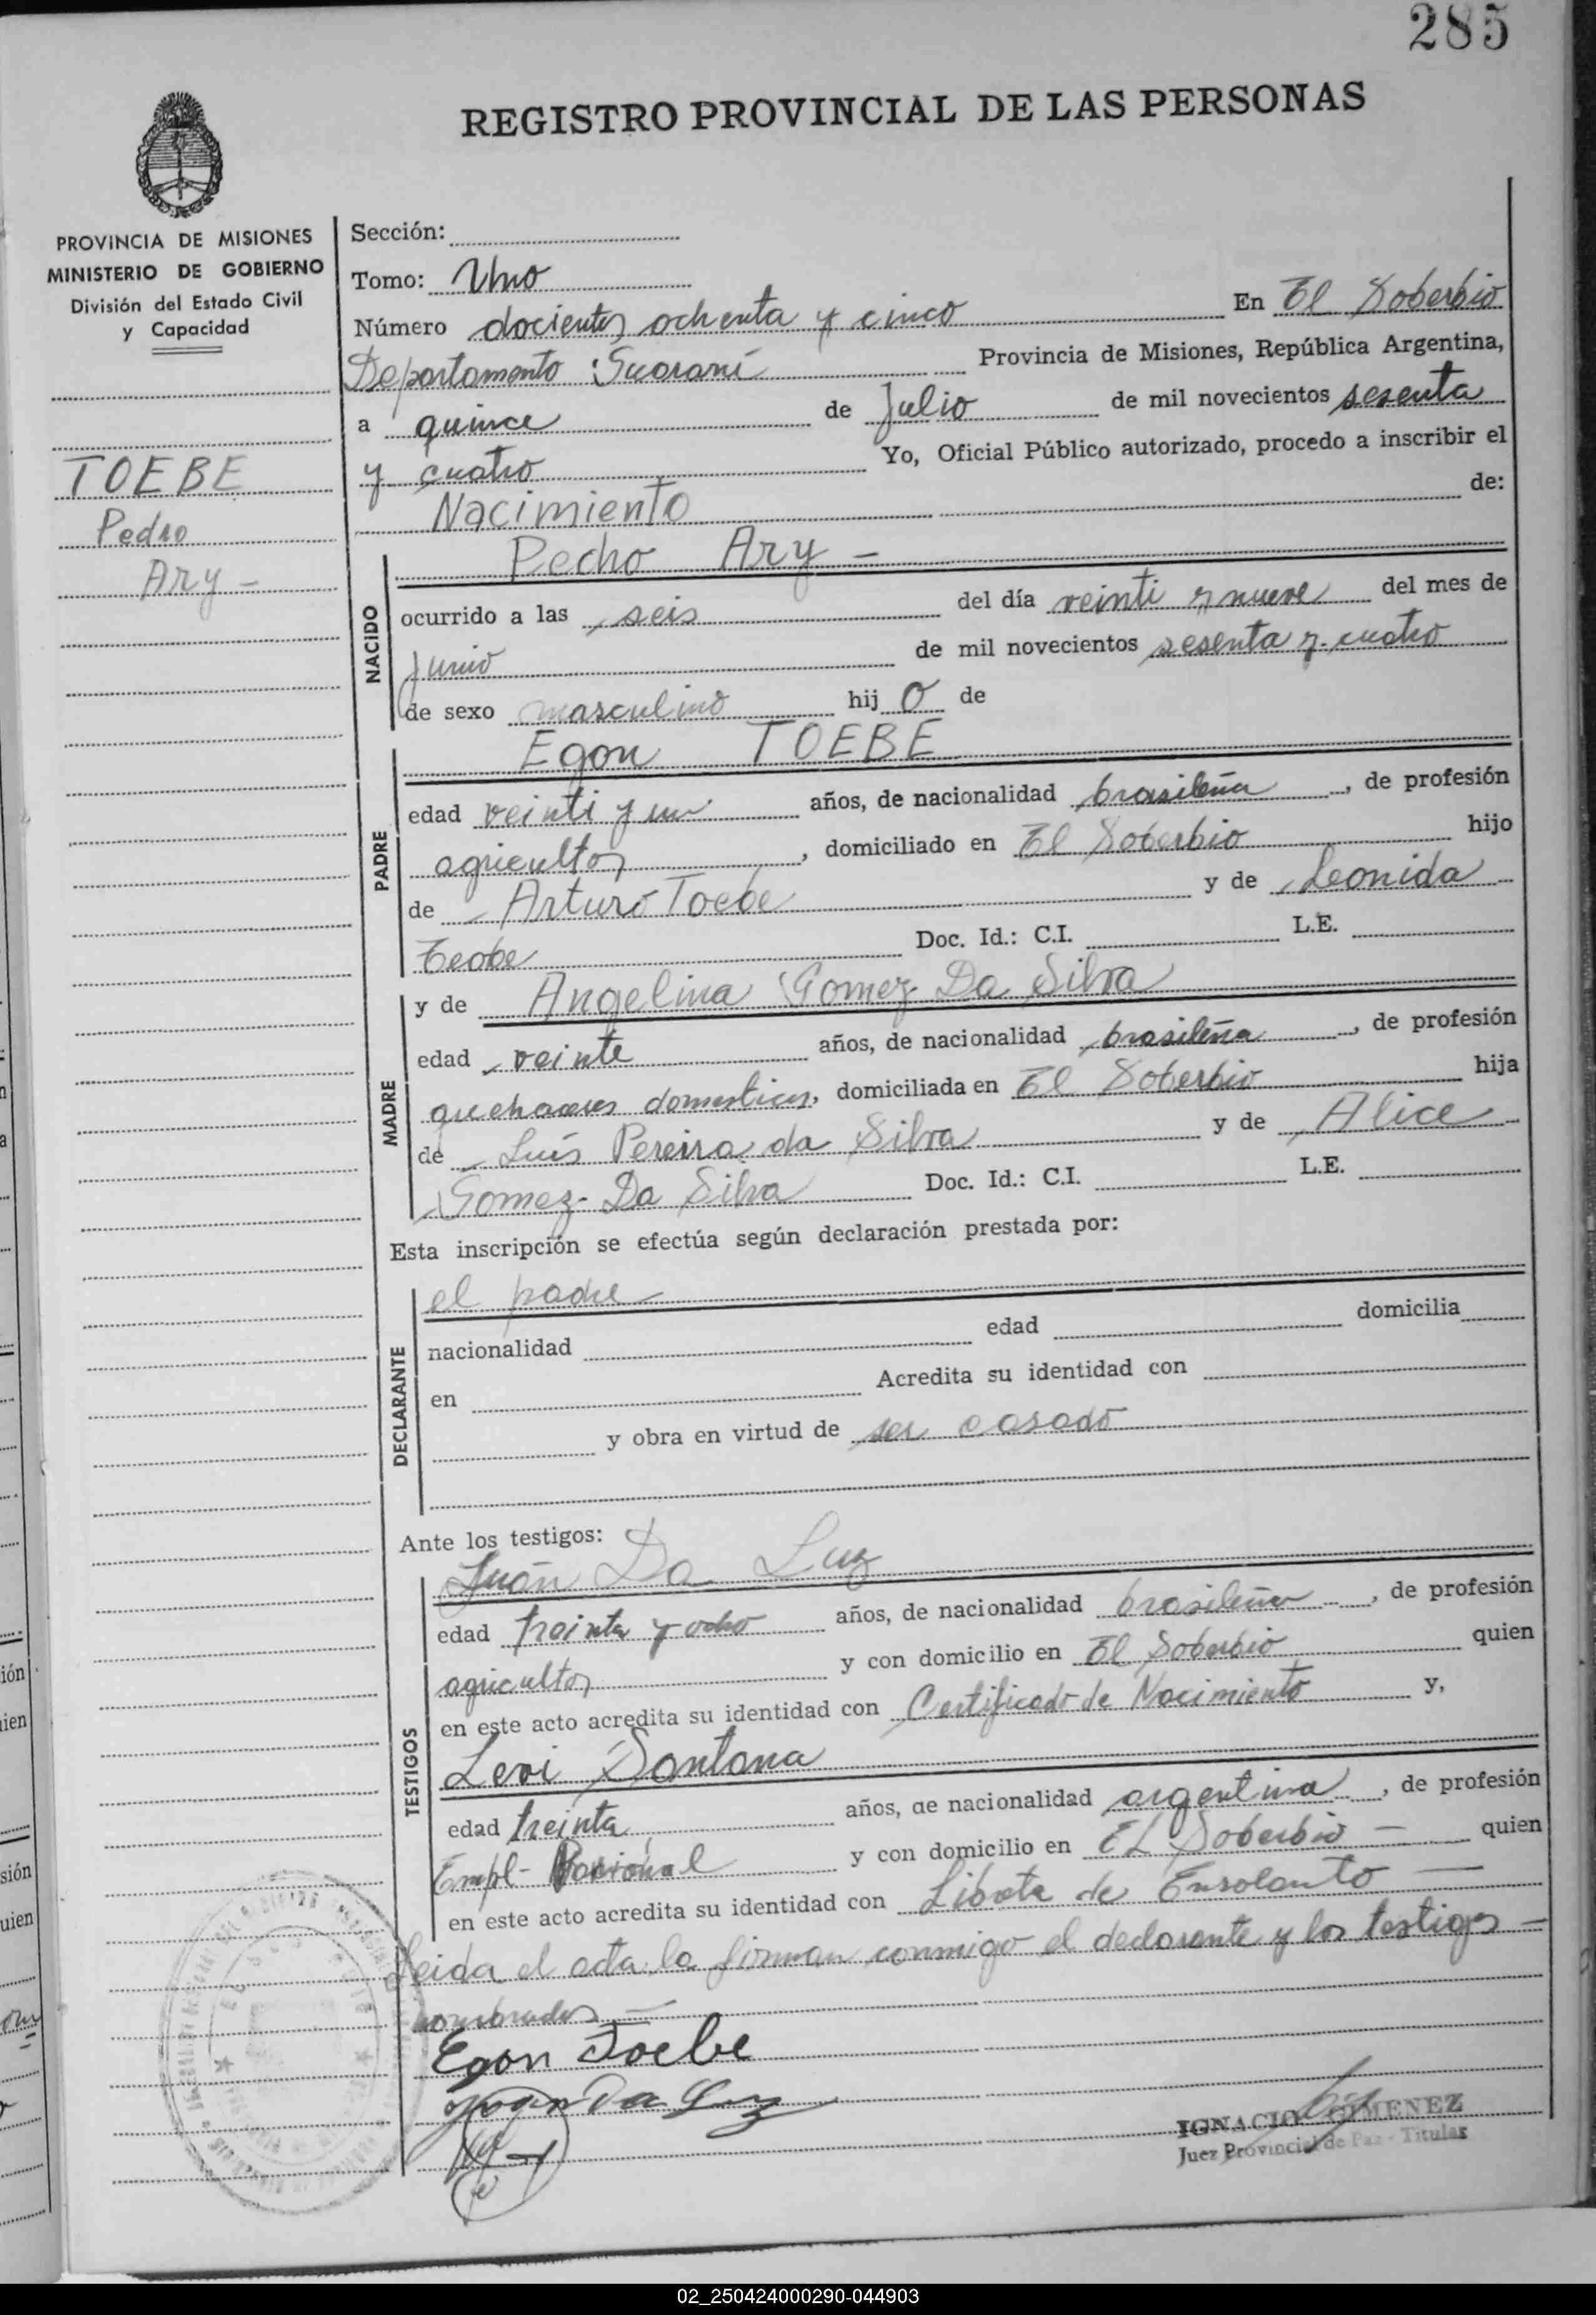 285
REGISTRO PROVINCIAL DE LAS PERSONAS
PROVINCIA DE MISIONES
MINISTERIO DE GOBIERNO
División del Estado Civil
y Capacidad
TOEBE
Pedro
Ary -
Sección:
Tomo: Uno
Número docientos ochenta y cinco En El Soberbio
Departamento Guaraní Provincia de Misiones, República Argentina,
a quince de Julio de mil novecientos sesenta
y cuatro Yo, Oficial Público autorizado, procedo a inscribir el
Nacimiento de:
NACIDO
Pedro Ary -
ocurrido a las seis del día veinti y nueve del mes de
junio de mil novecientos sesenta y cuatro
de sexo masculino hij o de
PADRE
Egon TOEBE
edad veinti y un años, de nacionalidad brasileña, de profesión
agricultor, domiciliado en El Soberbio hijo
de Arturo Toebe y de Leonida
Teobe Doc. Id.: C.I. L.E.
MADRE
y de Angelina Gomez Da Silva
edad veinte años, de nacionalidad brasileña, de profesión
quehaceres domesticos, domiciliada en El Soberbio hija
de Luís Pereira da Silva y de Alice
Gomez Da Silva Doc. Id.: C.I. L.E.
Esta inscripción se efectúa según declaración prestada por:
DECLARANTE
el padre
nacionalidad edad domicilia
en Acredita su identidad con
y obra en virtud de ser casado
Ante los testigos:
TESTIGOS
Juan Da Luz
edad treinta y ocho años, de nacionalidad brasileña, de profesión
agricultor y con domicilio en El Soberbio quien
en este acto acredita su identidad con Certificado de Nacimiento y,
Levi Santana
edad treinta años, de nacionalidad argentina, de profesión
Empl- Nacional y con domicilio en EL Soberbio - quien
en este acto acredita su identidad con Libreta de Enrolanto
Leida el acta la firman conmigo el declarante y los testigos -
nombrados -
Egon Toebe
Juan Da Luz
IGNACIO GIMENEZ
Juez Provincial de Paz - Titular
02_250424000290-044903